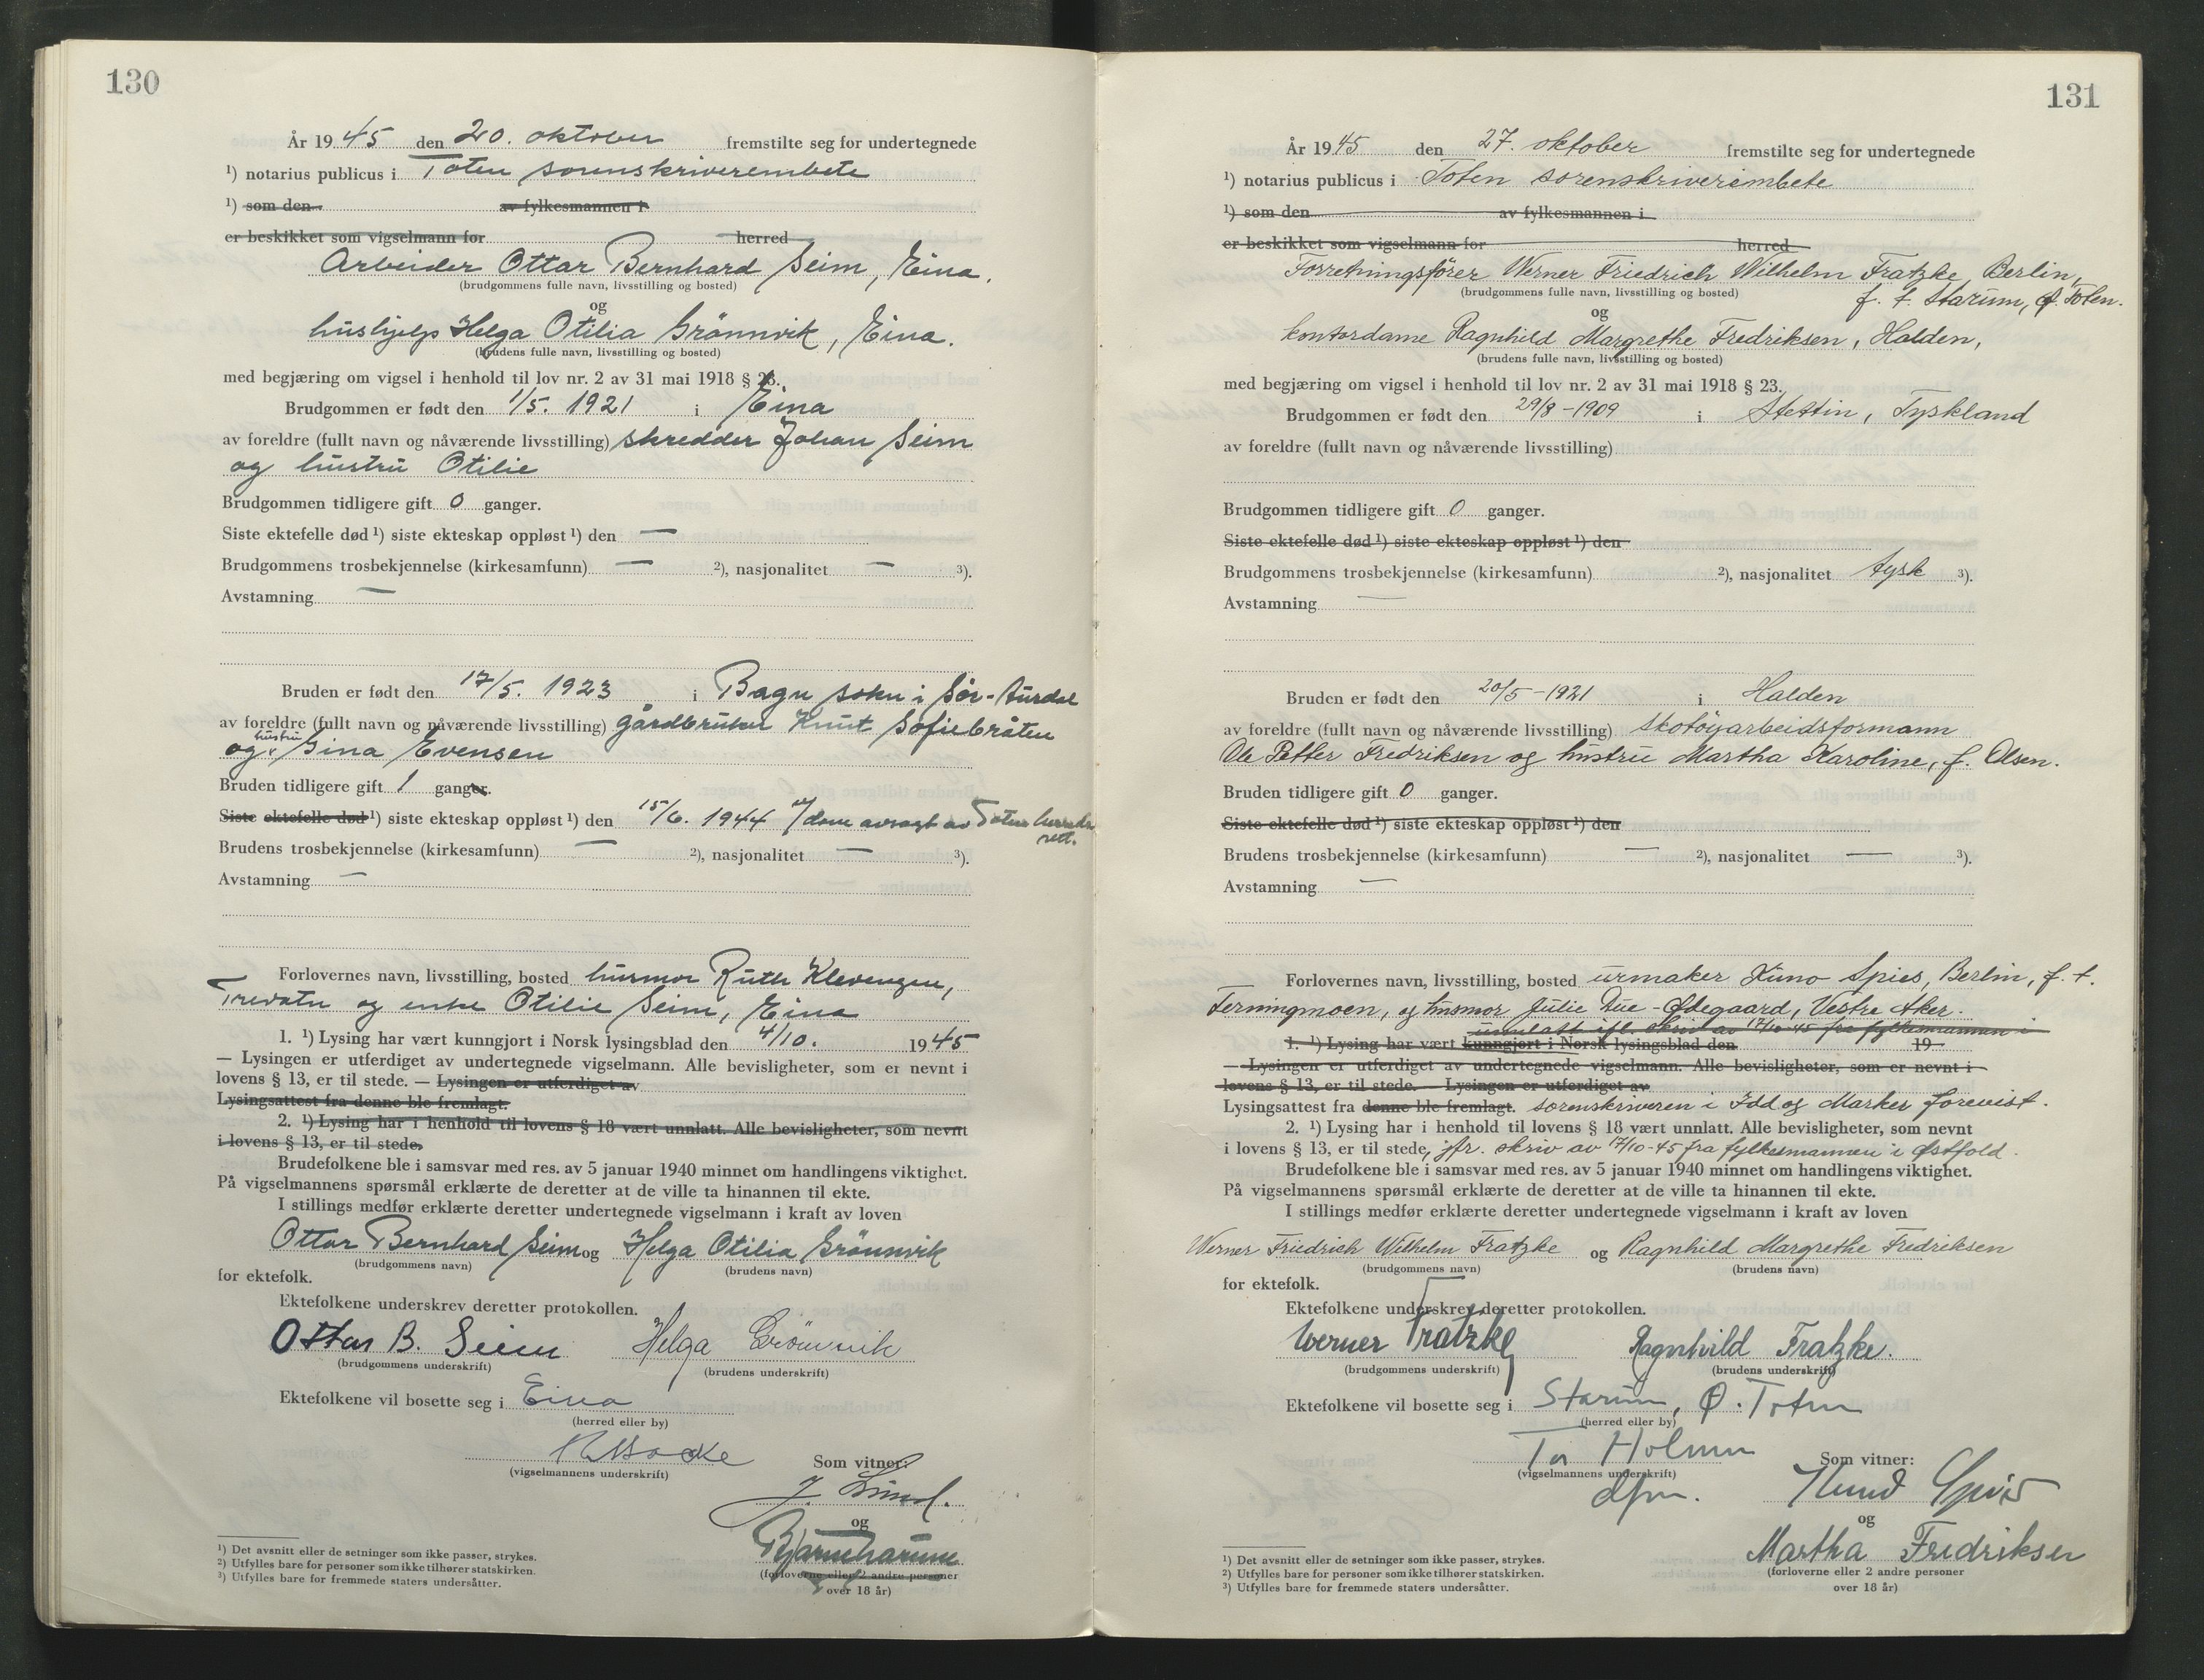 130
År 1945 den 20. oktober fremstilte seg for undertegnede
¹) notarius publicus i Toten sorenskriverembete
¹) som den av fylkesmannen i
er beskikket som vigselmann for herred
Arbeider Ottar Bernhard Seim, Eina.
(brudgommens fulle navn, livsstilling og bosted)
og
hushjelp Helga Otilia Grönnvik, Eina.
(brudens fulle navn, livsstilling og bosted)
med begjæring om vigsel i henhold til lov nr. 2 av 31 mai 1918 § 23.
Brudgommen er født den 1/5. 1921 i Eina
av foreldre (fullt navn og nåværende livsstilling) skredder Johan Seim
og hustru Otilie
Brudgommen tidligere gift 0 ganger.
Siste ektefelle død ¹) siste ekteskap oppløst ¹) den —
Brudgommens trosbekjennelse (kirkesamfunn) — ²), nasjonalitet — ³).
Avstamning —
Bruden er født den 17/5. 1923 i Bagn sokn i Sør-Aurdal
av foreldre (fullt navn og nåværende livsstilling) gårdbruker Knut Sofiebråten
og hustru Gina Evensen
Bruden tidligere gift 1 ganger.
Siste ektefelle død ¹) siste ekteskap oppløst ¹) den 15/6. 1944 v/dom avsagt av Toten herreds
rett.
Brudens trosbekjennelse (kirkesamfunn) — ²), nasjonalitet — ³).
Avstamning —
Forlovernes navn, livsstilling, bosted husmor Ruth Klevengen,
Trevatn og enke Otilie Seim, Eina
1. ¹) Lysing har vært kunngjort i Norsk lysingsblad den 4/10. 1945
— Lysingen er utferdiget av undertegnede vigselmann. Alle bevisligheter, som er nevnt i
lovens § 13, er til stede. — Lysingen er utferdiget av
Lysingsattest fra denne ble fremlagt.
2. ¹) Lysing har i henhold til lovens § 18 vært unnlatt. Alle bevisligheter, som nevnt
i lovens § 13, er til stede.
Brudefolkene ble i samsvar med res. av 5 januar 1940 minnet om handlingens viktighet.
På vigselmannens spørsmål erklærte de deretter at de ville ta hinannen til ekte.
I stillings medfør erklærte deretter undertegnede vigselmann i kraft av loven
Ottar Bernhard Seim og Helga Otilia Grönnvik
(brudgommens navn) (brudens navn)
for ektefolk.
Ektefolkene underskrev deretter protokollen.
Ottar B. Seim Helga Grönnvik
(brudgommens underskrift) (brudens underskrift)
Ektefolkene vil bosette seg i Eina
(herred eller by)
Som vitner:
(vigselmannens underskrift)
J. Lund.
og
(forloverne eller 2 andre personer
over 18 år)
¹) Det avsnitt eller de setninger som ikke passer, strykes.
²) Utfylles bare for personer som ikke tilhører statskirken.
³) Utfylles bare for fremmede staters undersåtter.
131
År 1945 den 27. oktober fremstilte seg for undertegnede
¹) notarius publicus i Toten sorenskriverembete
¹) som den av fylkesmannen i
er beskikket som vigselmann for herred
Forretningsfører Werner Friedrich Wilhelm Fratzke, Berlin,
f. t. Starum, Ø. Toten.
(brudgommens fulle navn, livsstilling og bosted)
og
kontordame Ragnhild Margrethe Fredriksen, Halden,
(brudens fulle navn, livsstilling og bosted)
med begjæring om vigsel i henhold til lov nr. 2 av 31 mai 1918 § 23.
Brudgommen er født den 29/8-1909 i Stettin, Tyskland
av foreldre (fullt navn og nåværende livsstilling)
Brudgommen tidligere gift 0 ganger.
Siste ektefelle død ¹) siste ekteskap oppløst ¹) den
Brudgommens trosbekjennelse (kirkesamfunn) ²), nasjonalitet tysk ³).
Avstamning —
Bruden er født den 20/5-1921 i Halden
av foreldre (fullt navn og nåværende livsstilling) skotöyarbeidsformann
Ole Petter Fredriksen og hustru Martha Karoline, f. Olsen.
Bruden tidligere gift 0 ganger.
Siste ektefelle død ¹) siste ekteskap oppløst ¹) den
Brudens trosbekjennelse (kirkesamfunn) — ²), nasjonalitet — ³).
Avstamning —
Forlovernes navn, livsstilling, bosted urmaker Kuno Spies, Berlin, f. t.
Terningmoen, og husmor Julie Due-Ødegaard, Vestre Aker.
unnlatt ifl. skriv av 17/10-45 fra fylkesmannen i
1. ¹) Lysing har vært kunngjort i Norsk lysingsblad den 19
— Lysingen er utferdiget av undertegnede vigselmann. Alle bevisligheter, som er nevnt i
lovens § 13, er til stede. — Lysingen er utferdiget av
Lysingsattest fra denne ble fremlagt. sorenskriveren i Idd og Marker forevist.
2. ¹) Lysing har i henhold til lovens § 18 vært unnlatt. Alle bevisligheter, som nevnt
i lovens § 13, er til stede, jfr. skriv av 17/10-45 fra fylkesmannen i Østfold.
Brudefolkene ble i samsvar med res. av 5 januar 1940 minnet om handlingens viktighet.
På vigselmannens spørsmål erklærte de deretter at de ville ta hinannen til ekte.
I stillings medfør erklærte deretter undertegnede vigselmann i kraft av loven
Werner Friedrich Wilhelm Fratzke og Ragnhild Margrethe Fredriksen
(brudgommens navn) (brudens navn)
for ektefolk.
Ektefolkene underskrev deretter protokollen.
Werner Fratzke Ragnhild Fratzke.
(brudgommens underskrift) (brudens underskrift)
Ektefolkene vil bosette seg i Starum, Ø. Toten
(herred eller by)
Tor Holmen
(vigselmannens underskrift)
dfm.
Som vitner:
Kuno Spies
og
Martha Fredriksen
(forloverne eller 2 andre personer
over 18 år)
¹) Det avsnitt eller de setninger som ikke passer, strykes.
²) Utfylles bare for personer som ikke tilhører statskirken.
³) Utfylles bare for fremmede staters undersåtter.